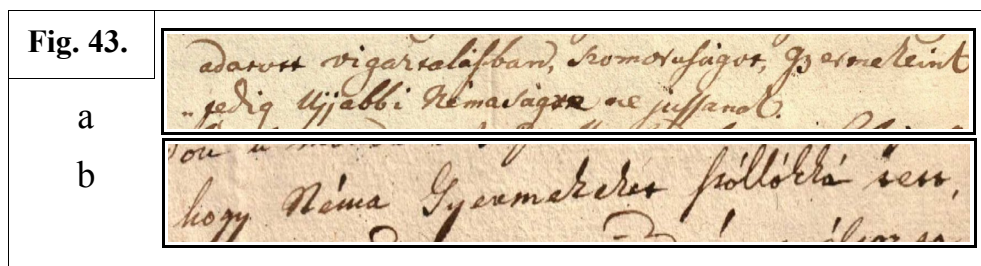 Fig. 43.
a
adatott vigaztalásban, szomoruságot, Gyermekeink
„ pedig Ujjabbi Némaságra ne jussanak.
b
hogy Néma Gyermekeket szóllókká tett,